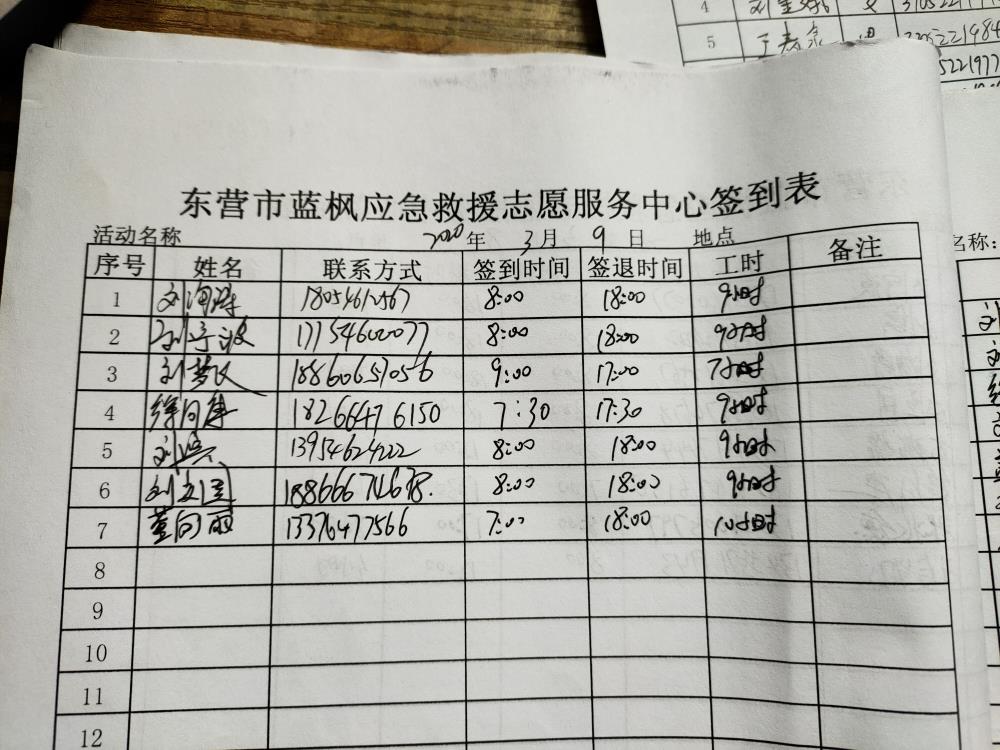 4 刘 女
5
东营市蓝枫应急救援志愿服务中心签到表
活动名称 2020年 3月 9日 地点
序号 姓名 联系方式 签到时间 签退时间 工时 备注
1 刘海涛 18:00 8:00 9小时
2 17154600077 8:00 18:00 9小时
3 刘梦文 18860657056 9:00 17:00 7小时
4 徐向 18266476150 7:30 17:30 9小时
5 刘 13954624222 8:00 18:00 9小时
6 刘立国 18866674678. 8:00 18:00 9小时
7 董向丽 13376477566 7:00 18:00 10小时
8
9
10
11
12
名称: